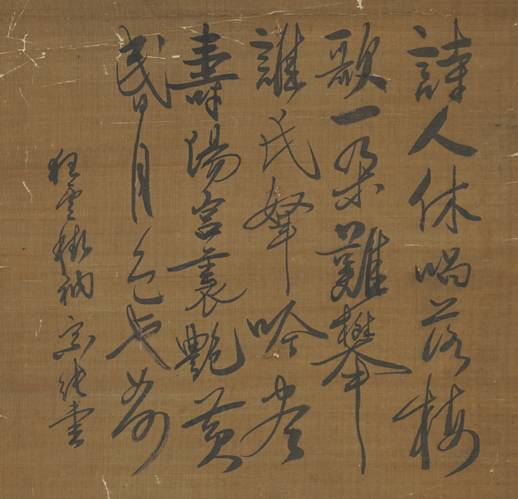 詩人休唱落梅
歌一朶難攀
誰氏拏吟尽
壽陽宮裏艶黄
昏月色也如何
狂雲衲宗純書